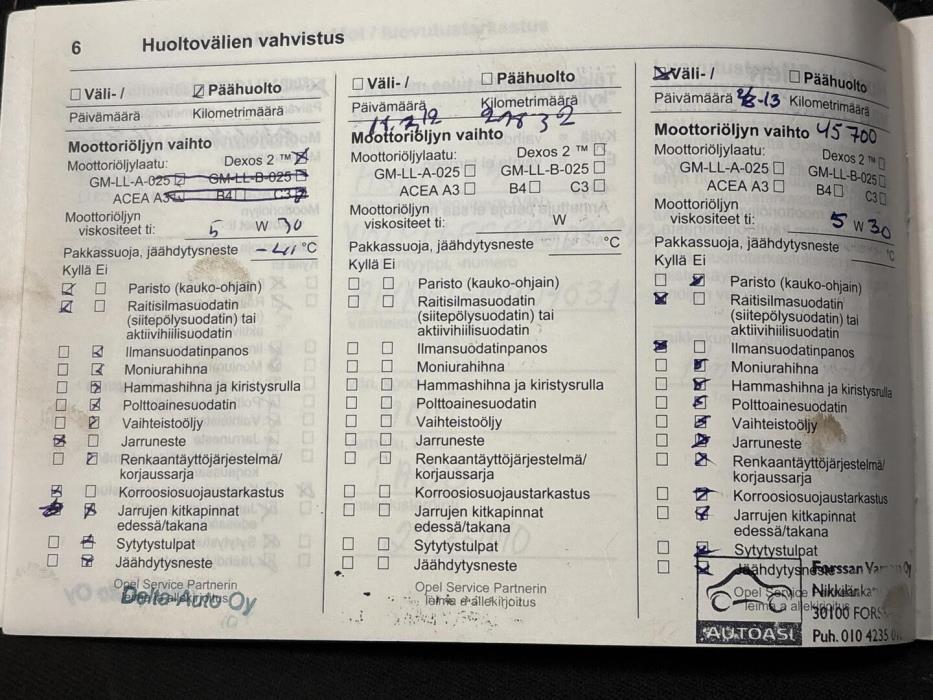 6 Huoltovälien vahvistus
Väli- / Päähuolto
Päivämäärä Kilometrimäärä
Moottoriöljyn vaihto
Moottoriöljylaatu: Dexos 2 ™
GM-LL-A-025 GM-LL-B-025
ACEA A3 B4 C3
Moottoriöljyn
viskositeet ti: 5 W 30
Pakkassuoja, jäähdytysneste °C
Kyllä Ei
Paristo (kauko-ohjain)
Raitisilmasuodatin
(siitepölysuodatin) tai
aktiivihiilisuodatin
Ilmansuodatinpanos
Moniurahihna
Hammashihna ja kiristysrulla
Polttoainesuodatin
Vaihteistoöljy
Jarruneste
Renkaantäyttöjärjestelmä/
korjaussarja
Korroosiosuojaustarkastus
Jarrujen kitkapinnat
edessä/takana
Sytytystulpat
Jäähdytysneste
Opel Service Partnerin
leima ja allekirjoitus
Delta-Auto Oy
Väli- / Päähuolto
Päivämäärä Kilometrimäärä
Moottoriöljyn vaihto
Moottoriöljylaatu: Dexos 2 ™
GM-LL-A-025 GM-LL-B-025
ACEA A3 B4 C3
Moottoriöljyn
viskositeet ti: W
Pakkassuoja, jäähdytysneste °C
Kyllä Ei
Paristo (kauko-ohjain)
Raitisilmasuodatin
(siitepölysuodatin) tai
aktiivihiilisuodatin
Ilmansuodatinpanos
Moniurahihna
Hammashihna ja kiristysrulla
Polttoainesuodatin
Vaihteistoöljy
Jarruneste
Renkaantäyttöjärjestelmä/
korjaussarja
Korroosiosuojaustarkastus
Jarrujen kitkapinnat
edessä/takana
Sytytystulpat
Jäähdytysneste
Opel Service Partnerin
leima ja allekirjoitus
Väli- / Päähuolto
Päivämäärä Kilometrimäärä
Moottoriöljyn vaihto 45700
Moottoriöljylaatu: Dexos 2 ™
GM-LL-A-025 GM-LL-B-025
ACEA A3 B4 C3
Moottoriöljyn
viskositeet ti: 5 W 30
Pakkassuoja, jäähdytysneste °C
Kyllä Ei
Paristo (kauko-ohjain)
Raitisilmasuodatin
(siitepölysuodatin) tai
aktiivihiilisuodatin
Ilmansuodatinpanos
Moniurahihna
Hammashihna ja kiristysrulla
Polttoainesuodatin
Vaihteistoöljy
Jarruneste
Renkaantäyttöjärjestelmä/
korjaussarja
Korroosiosuojaustarkastus
Jarrujen kitkapinnat
edessä/takana
Sytytystulpat
Jäähdytysneste
Opel Service
leima ja allekirjoitus
AUTOASI
Forssan
30100 FORS
Puh. 010 4235